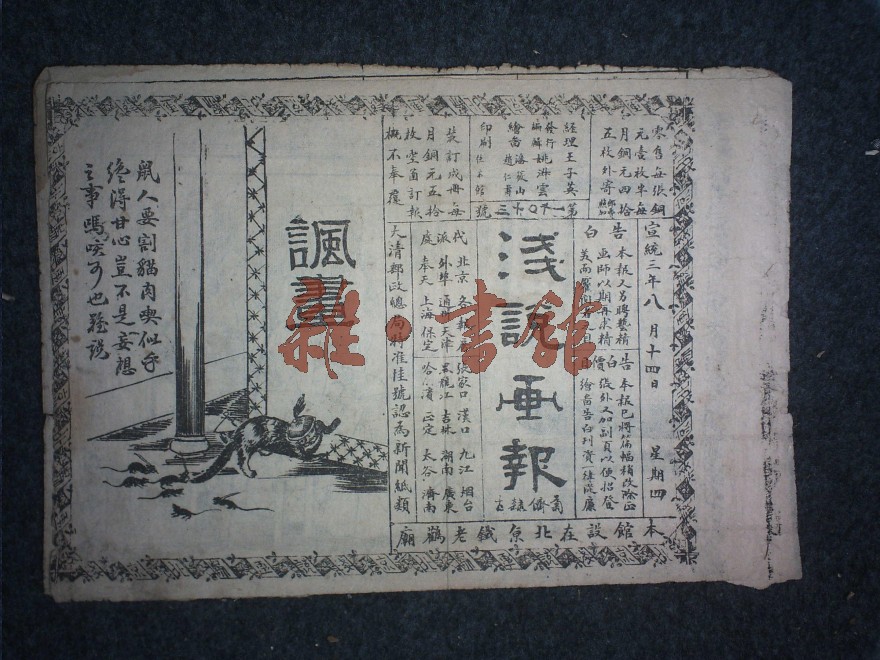 零售每張銅
元壹枚半每
月銅元四拾
五枚外寄
經理王子英
發行
編輯姚淋雲
印刷
裝訂成冊每
月銅元五拾
枚
概不奉覆
第一千〇十三號
宣統三年八月十四日 星期四
告白
本報人另聘藝精
畫師以期再求精
美
告白
本報已將篇幅稍改除正
張外又加副頁以便招登
繪畫告白刊資一律從廉
淺說畫報
代派
北京 各報
張家口 漢口 九江 烟台
外埠 通州 天津 黑龍江 吉林 湖南 廣東
奉天 上海 保定 哈 濱 正定 太谷 濟南
大清郵政總局特准挂號認為新聞紙類
本館設在北京鐵老鸛廟
諷畫
鼠人要割貓肉喫似乎
纔得甘心豈不是妄想
之事嗎唉可也難說
雜·書館